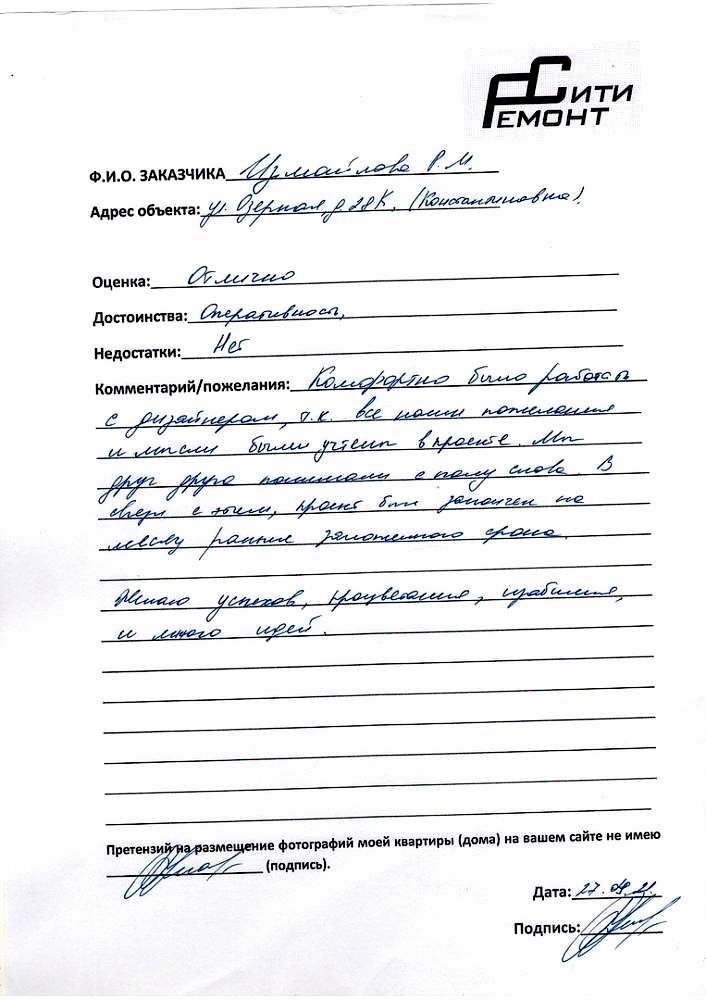 СИТИ
РЕМОНТ
Ф.И.О. ЗАКАЗЧИКА Измайлова Р. М.
Адрес объекта: ул. Озерная, д. 28К, (Константиновка).
Оценка: Отлично
Достоинства: Оперативность,
Недостатки: Нет
Комментарий/пожелания: Комфортно было работать
с дизайнером, т.к. все наши пожелания
и мысли были учтены в проекте. Мы
друг друга понимали с полу слова. В
связи с этим, проект был закончен на
месяц ранее заложенного срока.
Желаю успехов, процветания, изобилия,
и много идей.
Претензий на размещение фотографий моей квартиры (дома) на вашем сайте не имею
(подпись).
Дата: 27.
Подпись: